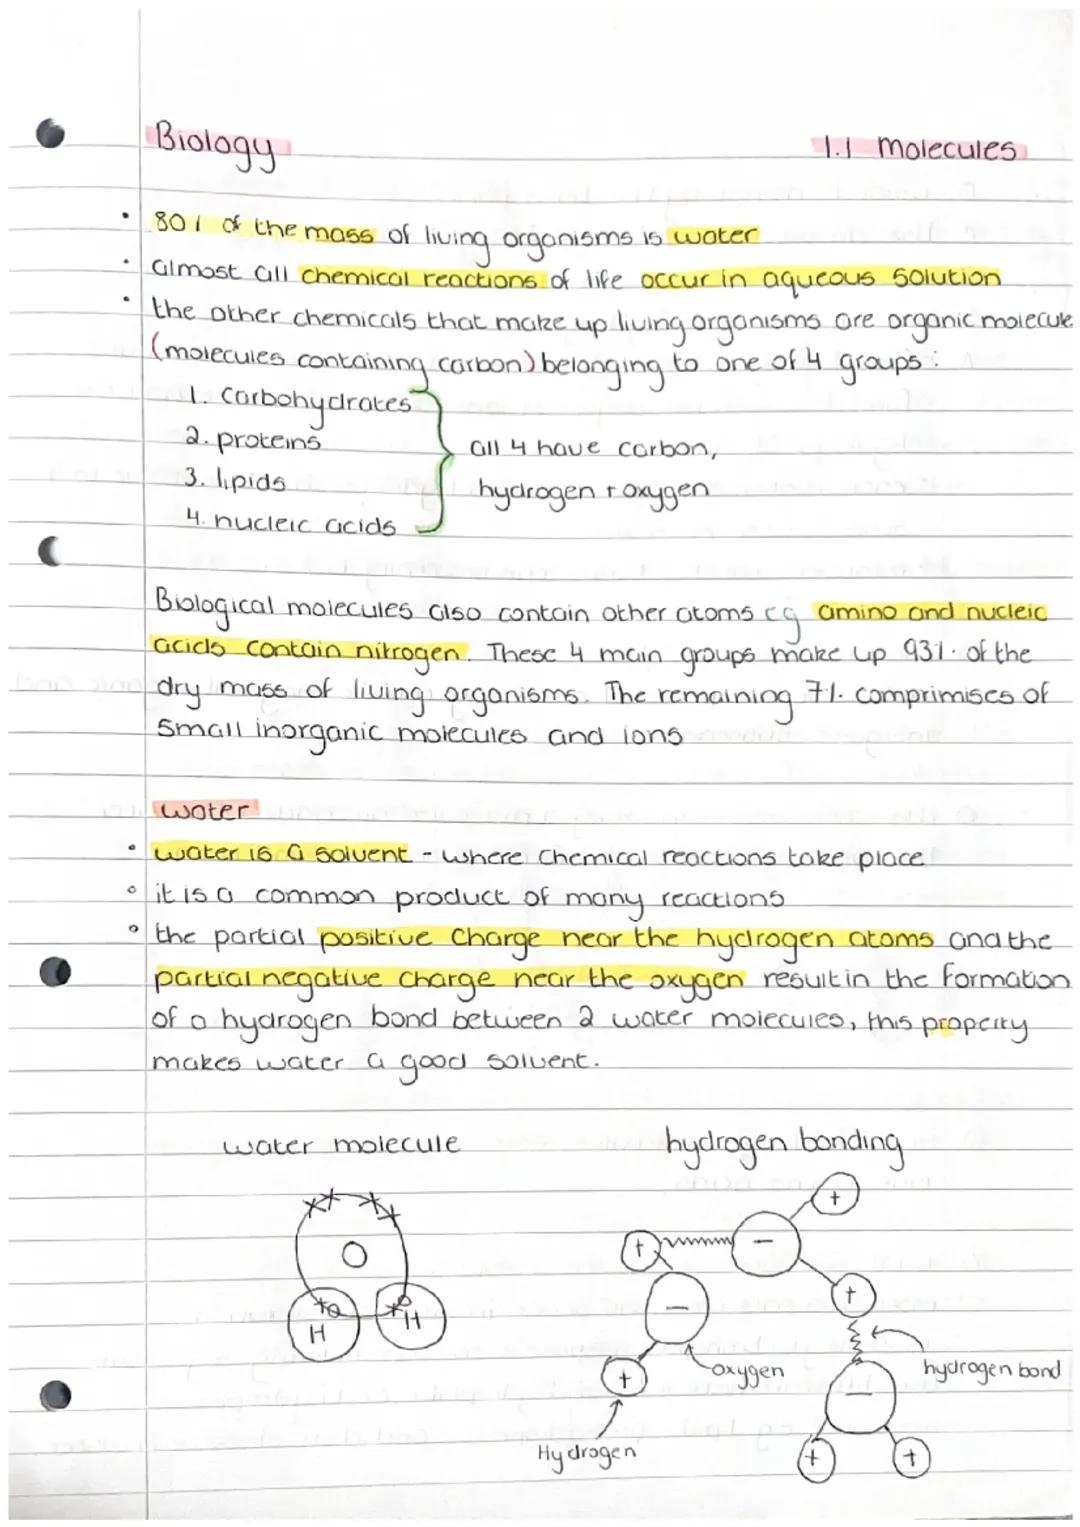 Biology
1.1 molecules
• 80% of the mass of living organisms is water
• almost all chemical reactions of life occur in aqueous solution
• the other chemicals that make up living organisms are organic molecule
(molecules containing carbon) belonging to one of 4 groups:
1. Carbohydrates
2. proteins
3. lipids
4. nucleic acids
all 4 have carbon,
hydrogen + oxygen
Biological molecules also contain other atoms eg amino and nucleic
acids contain nitrogen. These 4 main groups make up 93%. of the
dry mass of living organisms. The remaining 7%. comprimises of
small inorganic molecules and ions
water
• water is a solvent - where chemical reactions take place
• it is a common product of many reactions
• the partial positive charge near the hydrogen atoms and the
partial negative charge near the oxygen result in the formation
of a hydrogen bond between 2 water molecules, this property
makes water a good solvent.
water molecule
hydrogen bonding
O
H
H
+
+
−
−
+
+
oxygen
hydrogen bond
−
Hydrogen
+
+